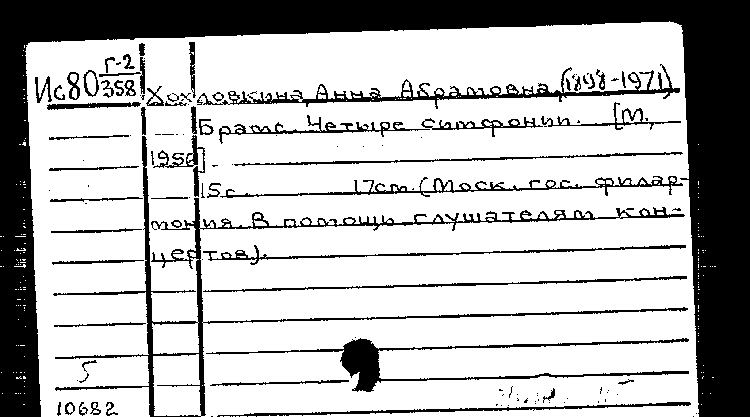 Ис80 Г-2
358
Хохловкина, Анна Абрамовна, (1898-1971)
Брамс. Четыре симфонии. [М.,
1956].
15с. 17см. (Моск. гос. филар-
мония. В помощь слушателям кон-
цертов).
5
10682